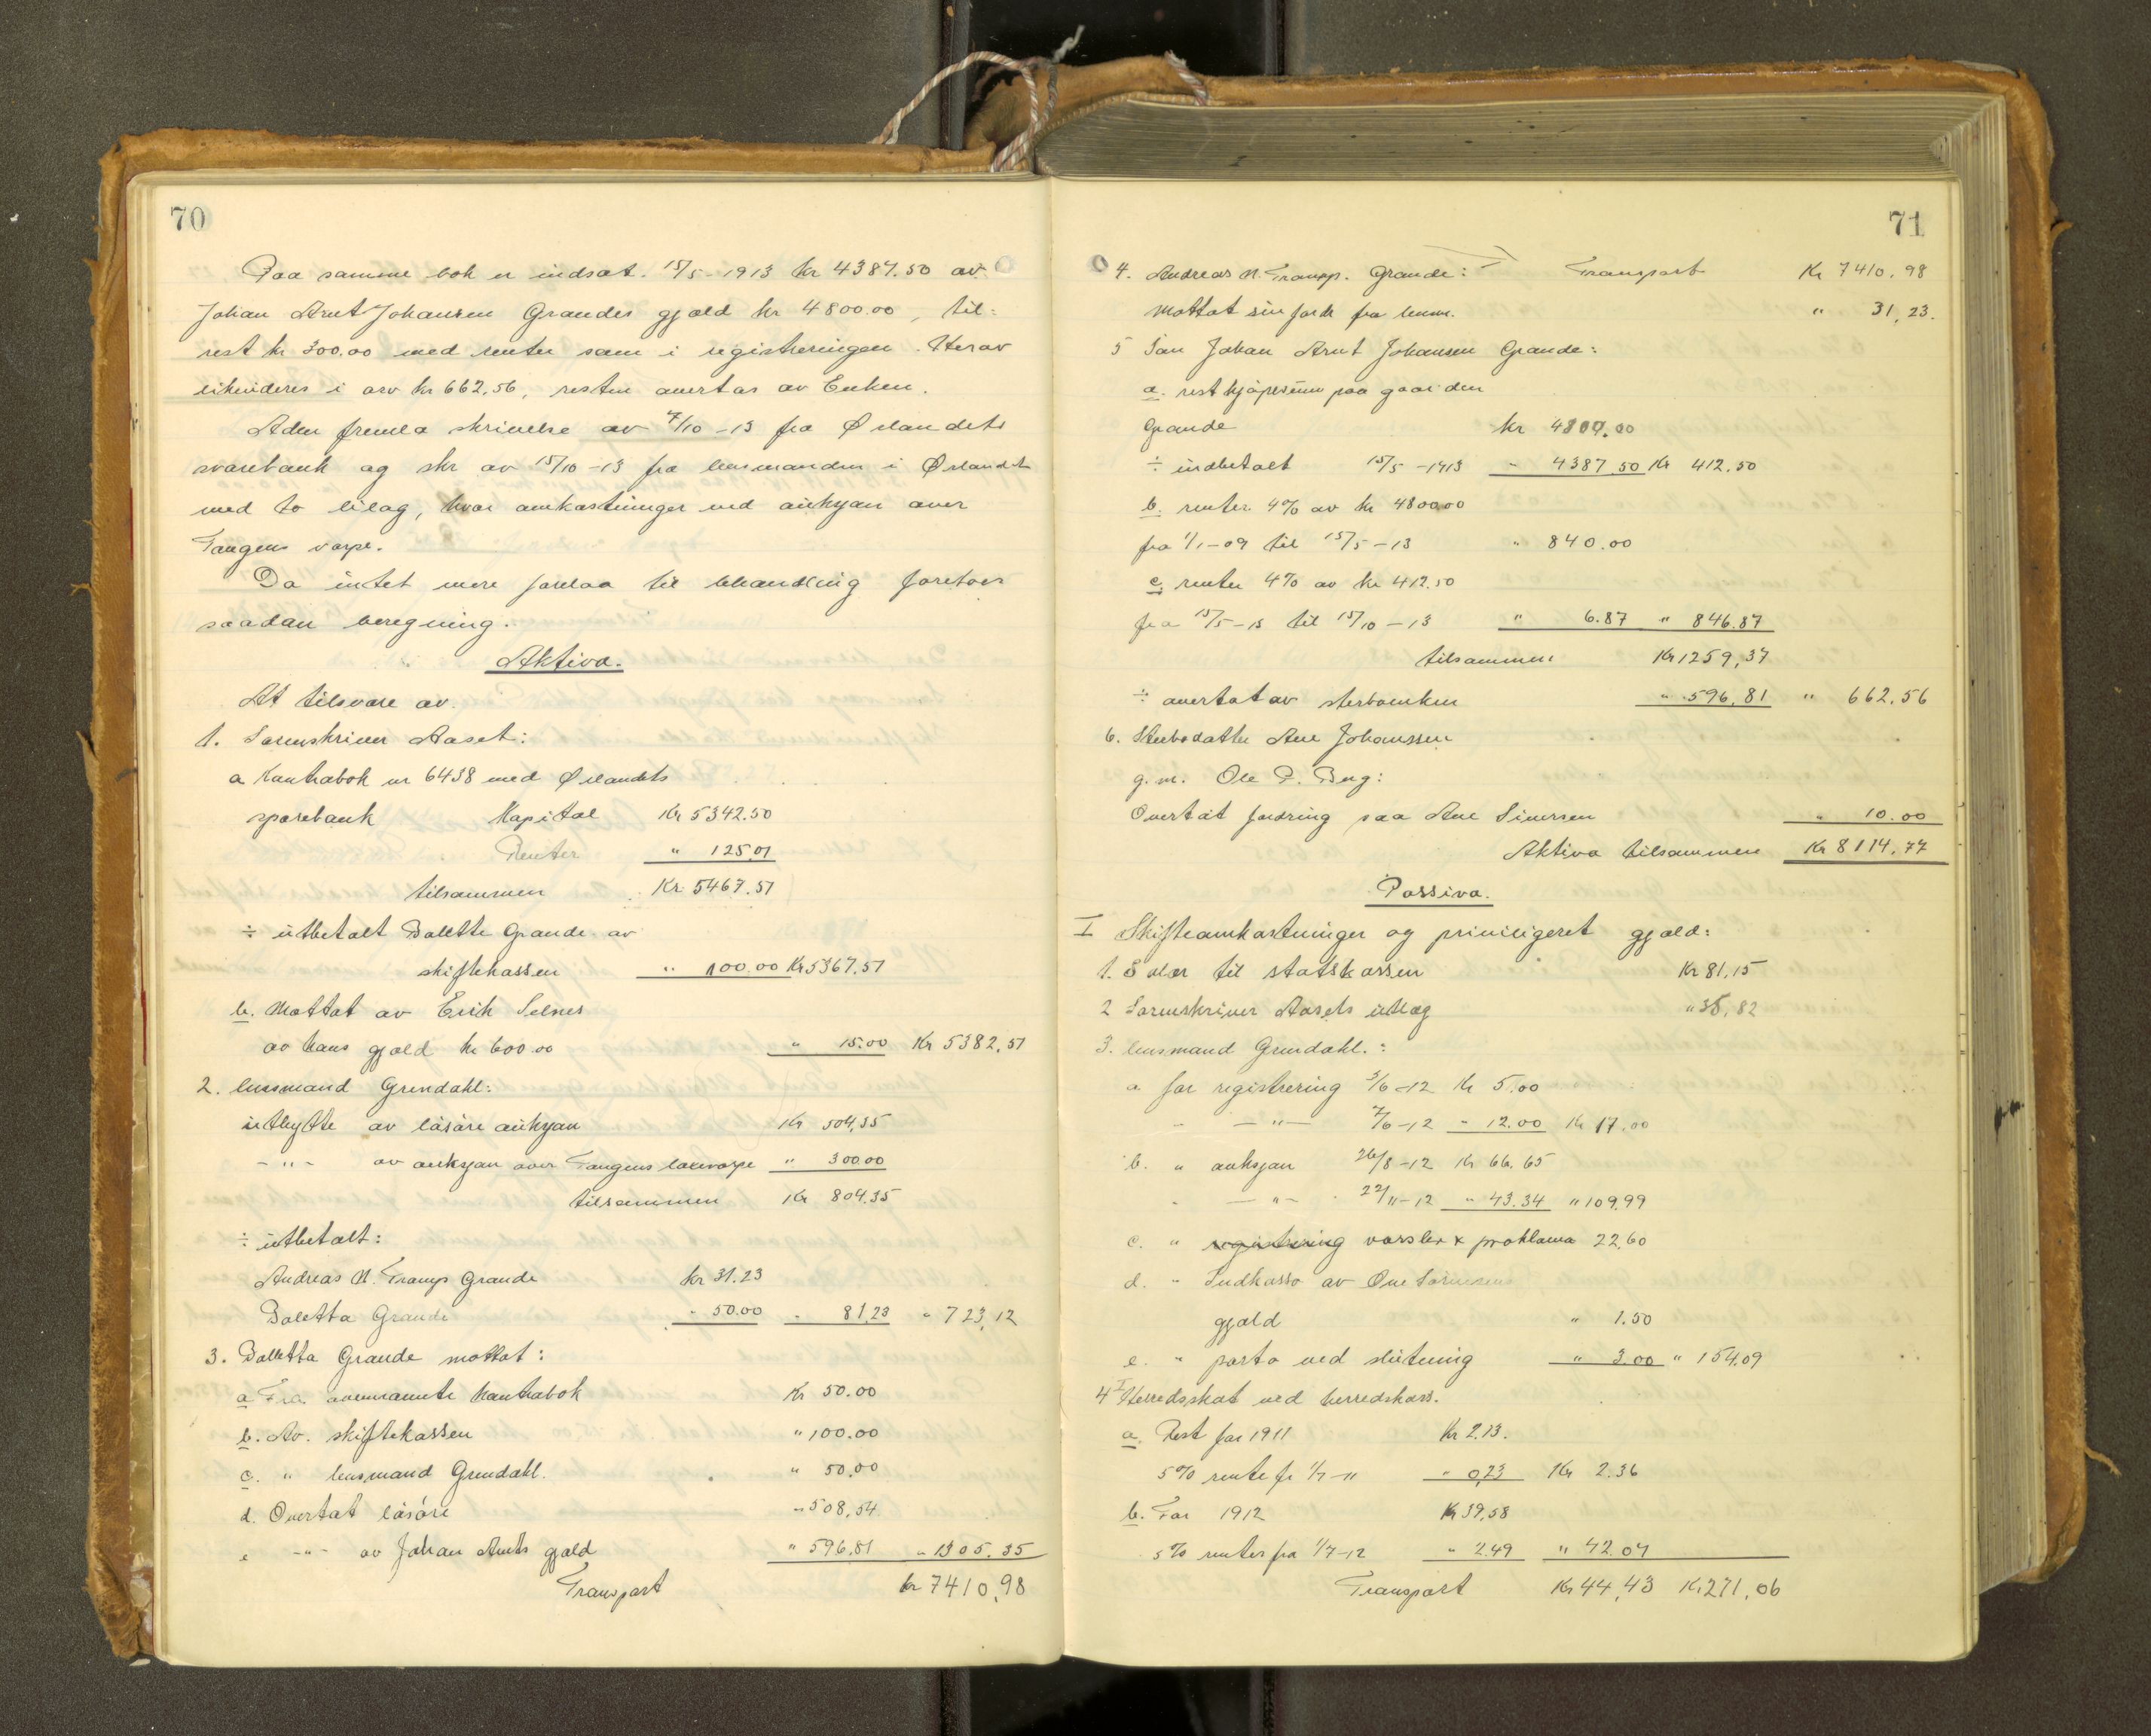 70
Paa samme bok er indsat 15/5-1913 kr 4387.50 av
Johan Arnt Johansen Grandes gjæld kr 4800.00, til=
rest kr 300.00 med renter som i registreringen. Herav
likvideres i arv kr 662,56, resten overtas av Enken.
Aden fremla skrivelse av 7/10-13 fra Ørlandets
sparebank og skr av 15/10-13 fra lensmanden i Ørlandet
med to bilag, hvor omkostninger ved auksjon over
Tangens varpe.
Da intet mere forelaa til behandling foretoes
saadan beregning.
Aktiva.
At tilsvare av.
1. Sorenskriver Aaset:
a Kontrabok nr 6438 med Ørlandets
sparebank Kapital Kr 5342.50
Renter " 125,01
tilsammen Kr. 5467.51
÷ utbetalt Bolette Grande av
skiftekassen " 100.00 Kr 5367.51
b. Mottat av Erik Selnes
av hans gjæld kr 600.00 " 15.00 Kr 5382,51
2. lensmand Grendahl:
utbytte av løsøre auksjon Kr 504,35
- " - av auksjon over Tangens laksevarpe " 300.00
tilsammen Kr 804.35
÷ utbetalt:
Andreas N. Tramp Grande kr 31.23
Boletta Grande " 50.00 " 81,23 " 723,12
3. Bolletta Grande mottat:
a Fra ovennævnte kontrabok Kr 50.00
b. Av. skiftekassen " 100.00
c. " lensmand Grendahl. " 50,00
d. Overtat løsøre " 508,54
e - " - av Johan Arnts gjæld " 596.81 " 1305.35
Transport kr 7410,98
71
4. Andreas N. Tramp. Grande: Transport Kr 7410,98
Mottat sin fordr fra lensm. " 31,23.
5 Søn Johan Arnt Johansen Grande:
a. rest kjøpesum paa gaarden
Grande kr 4800.00
÷ indbetalt 15/5-1913 " 4387,50 Kr 412.50
b. renter 4% av kr 4800.00
fra 1/1-09 til 15/5-13 " 840.00
c. renter 4% av kr 412.50
fra 15/5-13 til 15/10-13 " 6.87 " 846.87
tilsammen Kr 1259,37
÷ overtat av sterboenken " 596,81 " 662.56
6. Sterbodatter Ane Johanssen
g.m. Ole P. Berg:
Overtat fordring paa Ane Siversen " 10.00
Aktiva tilsammen Kr 8114,77
Passiva.
I Skifteomkostninger og priviligeret gjæld:
1. Saler til statskassen Kr 81,15
2 Sorenskriver Aasets utlæg " 35,82
3. lensmand Grendahl.:
a for registrering 3/6-12 Kr 5.00
- - " - 7/6-12 " 12.00 Kr 17.00
b. " auksjon 26/8-12 Kr 66.65
- - " - 22/11-12 " 43.34 " 109,99
c. " registrering varsler x proklama 22,60
d. " Indkasso av One Sørensens
gjæld " 1.50
e. " porto ved slutning " 3.00 " 154,09
4 I Herredsskat ved herredskass.
a. Rest for 1911 Kr 2.13.
5% rente fr 1/7-11 " 0,23 Kr 2.36
b. For 1912 Kr 39,58
5% renter fra 1/7-12 " 2.49 " 42.07
Transport Kr 44,43 Kr 271,06